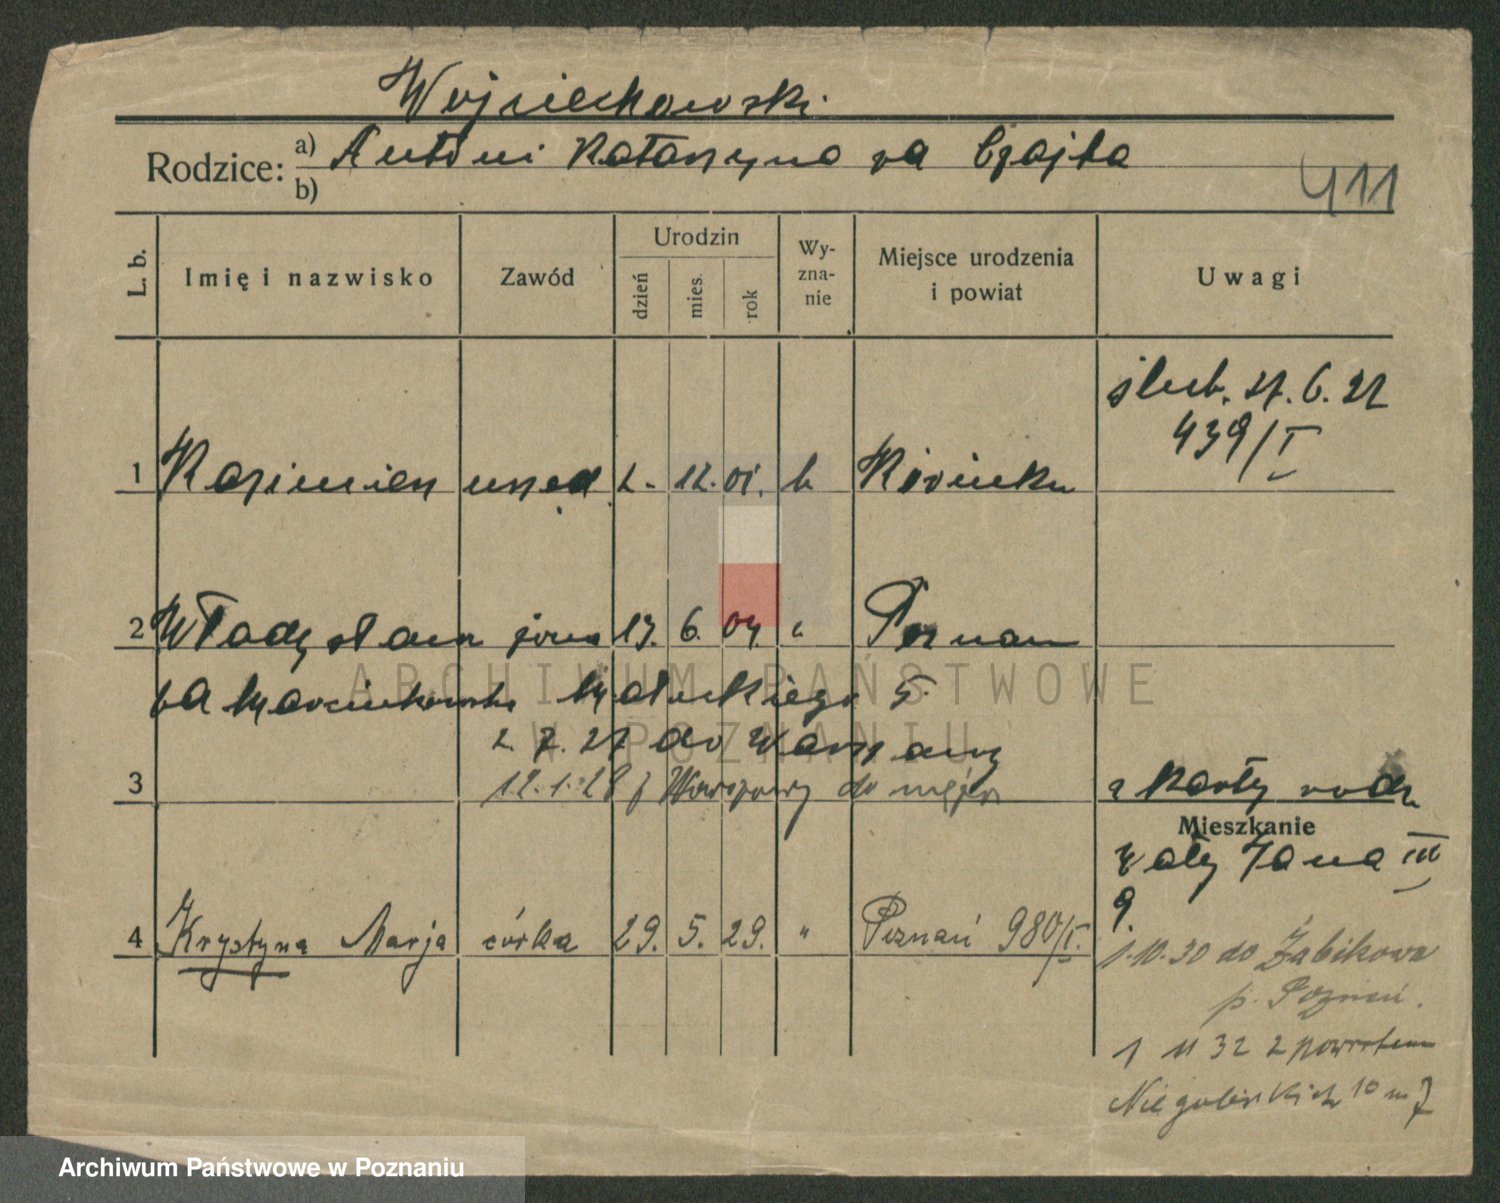 Wojciechowski
Rodzice: a) Antoni Katarzyna za Czajka
b)
411
L. b. Imię i nazwisko Zawód Urodzin dzień mies. rok Wy-zna-nie Miejsce urodzenia i powiat Uwagi
ślub. 27. 6. 27
439/I
1 Kazimierz urzęd 2. 12. 01. k
2 Władysława żona 13. 6. 04. Poznań
Małeckiego 5.
2. 7. 27 do Warszawy
12. 1. 28 z Warszawy do męża
3 z karty rodz.
Mieszkanie
Wały Jana III
9.
4 Krystyna Marja córka 29. 5. 29. " Poznań 980/I.
1. 10. 30 do Żabikowa
p. Poznań.
1 11 32 z powrotem
Niegolewskich 10 m 7
ARCHIWUM PAŃSTWOWE
W POZNANIU
Archiwum Państwowe w Poznaniu